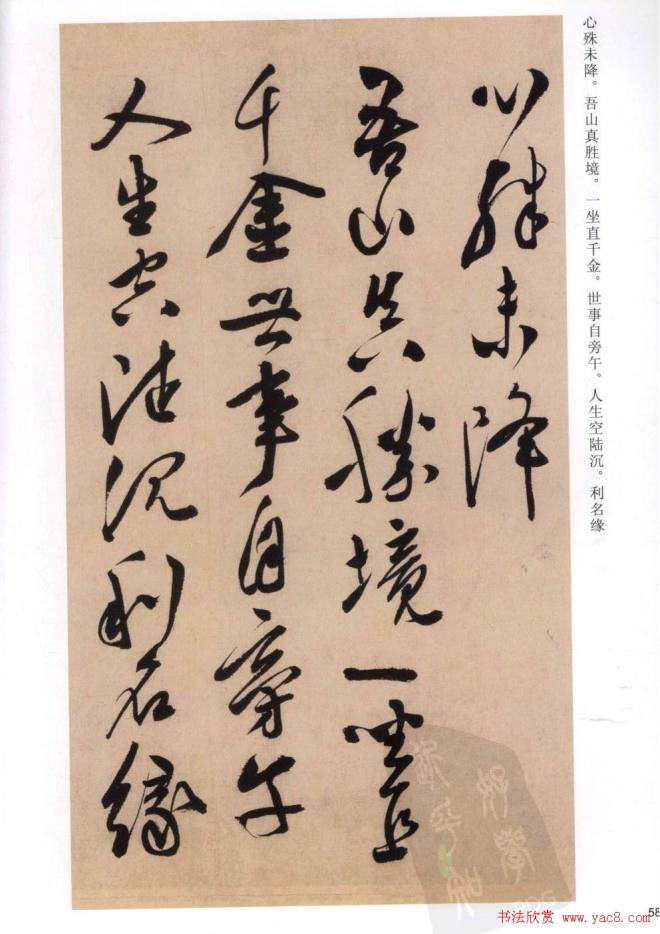 心殊未降。吾山真胜境。一坐直千金。世事自旁午。人生空陆沉。利名缘
心殊未降
吾山真勝境一坐直
千金世事自旁午
人生空陸沉利名緣
58
书法欣赏 www.yac8.com